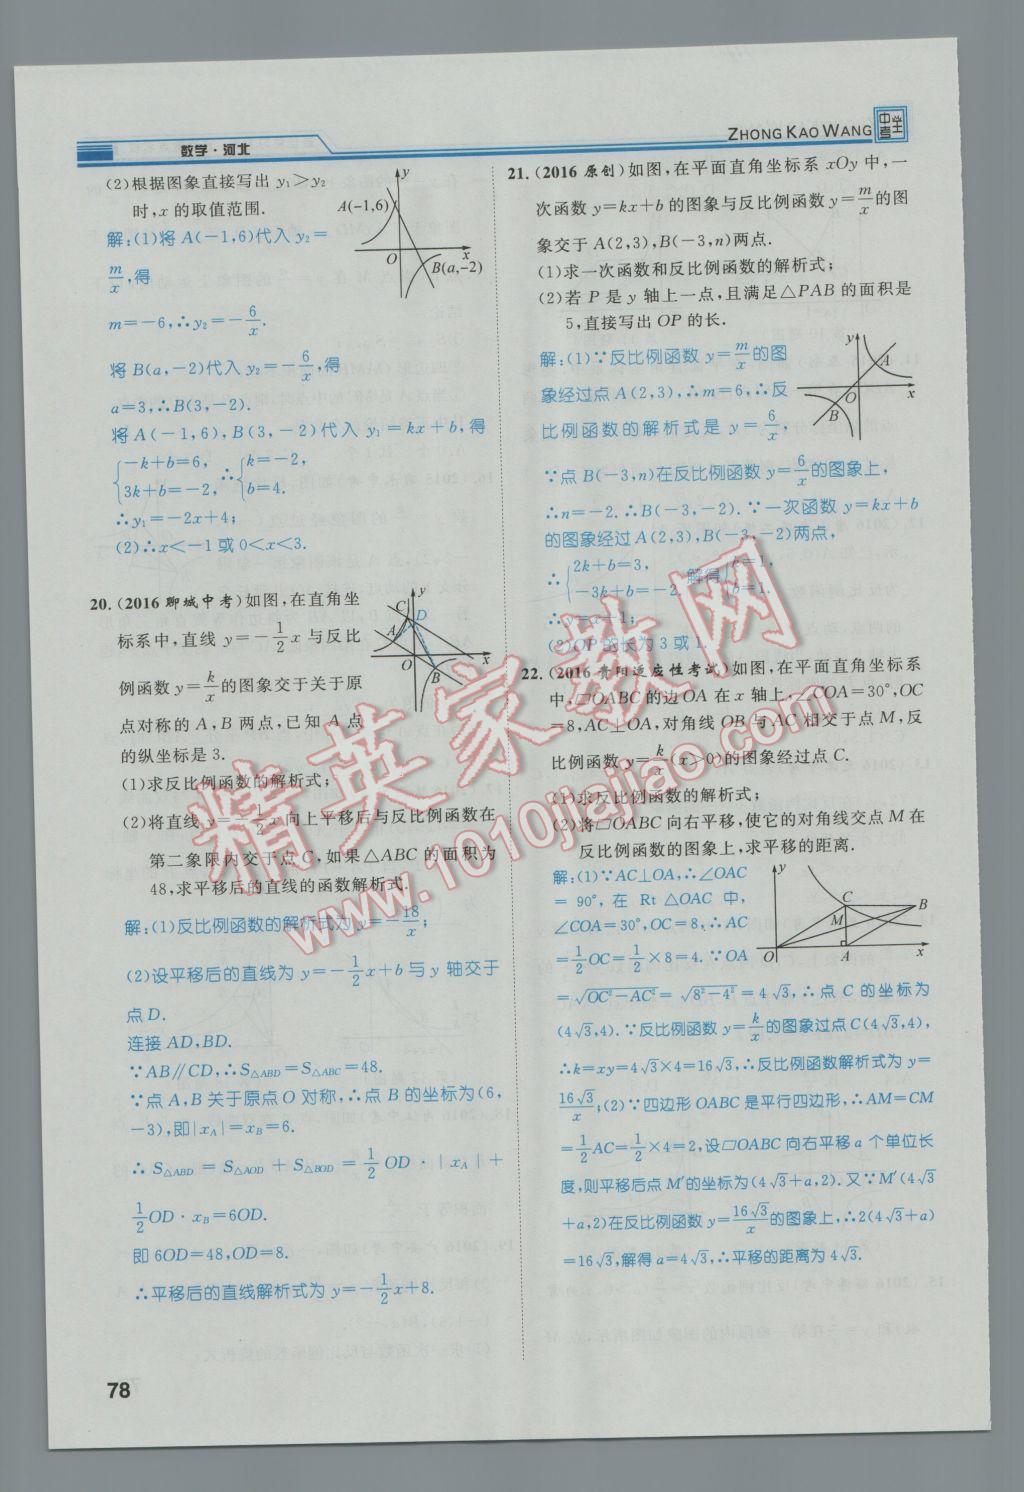 数学·河北
ZHONG KAO WANG
中考王
(2)根据图象直接写出 y₁>y₂
时,x 的取值范围.
y
A(-1,6)
O
x
B(a,-2)
解:(1)将 A(-1,6)代入 y₂=
m/x,得
m=-6,∴y₂=-6/x.
将 B(a,-2)代入 y₂=-6/x,得
a=3,∴B(3,-2).
将 A(-1,6),B(3,-2)代入 y₁=kx+b,得
{-k+b=6, ∴{k=-2,
3k+b=-2, b=4.
∴y₁=-2x+4;
(2)∴x<-1 或 0<x<3.
20.(2016 聊城中考)如图,在直角坐
标系中,直线 y=-1/2x 与反比
例函数 y=k/x的图象交于关于原
点对称的 A,B 两点,已知 A 点
的纵坐标是 3.
C
y
D
A
O
x
B
(1)求反比例函数的解析式;
(2)将直线 y=-1/2x 向上平移后与反比例函数在
第二象限内交于点 C,如果△ABC 的面积为
48,求平移后的直线的函数解析式.
解:(1)反比例函数的解析式为 y=-18/x;
(2)设平移后的直线为 y=-1/2x+b 与 y 轴交于
点 D.
连接 AD,BD.
∵AB∥CD,∴S△ABD=S△ABC=48.
∵点 A,B 关于原点 O 对称,∴点 B 的坐标为(6,
-3),即|xA|=xB=6.
∴S△ABD=S△AOD+S△BOD=1/2OD·|xA|+
1/2OD·xB=6OD.
即 6OD=48,OD=8.
∴平移后的直线解析式为 y=-1/2x+8.
21.(2016 原创)如图,在平面直角坐标系 xOy 中,一
次函数 y=kx+b 的图象与反比例函数 y=m/x的图
象交于 A(2,3),B(-3,n)两点.
(1)求一次函数和反比例函数的解析式;
(2)若 P 是 y 轴上一点,且满足△PAB 的面积是
5,直接写出 OP 的长.
解:(1)∵反比例函数 y=m/x的图
象经过点 A(2,3),∴m=6,∴反
比例函数的解析式是 y=6/x,
y
A
O
x
B
∵点 B(-3,n)在反比例函数 y=6/x的图象上,
∴n=-2.∴B(-3,-2).∵一次函数 y=kx+b
的图象经过 A(2,3),B(-3,-2)两点,
∴{2k+b=3, 解得{k=1,
-3k+b=-2. b=1.
∴y=x+1;
(2)OP 的长为 3 或 1.
22.(2016 贵阳适应性考试)如图,在平面直角坐标系
中,▱OABC 的边 OA 在 x 轴上,∠COA=30°,OC
=8,AC⊥OA,对角线 OB 与 AC 相交于点 M,反
比例函数 y=k/x(x>0)的图象经过点 C.
(1)求反比例函数的解析式;
(2)将▱OABC 向右平移,使它的对角线交点 M 在
反比例函数的图象上,求平移的距离.
解:(1)∵AC⊥OA,∴∠OAC
=90°,在 Rt△OAC 中,
∠COA=30°,OC=8,∴AC
=1/2OC=1/2×8=4.∵OA
y
C
B
M
O
A
x
=√(OC²-AC²)=√(8²-4²)=4√3,∴点 C 的坐标为
(4√3,4).∵反比例函数 y=k/x的图象过点 C(4√3,4),
∴k=xy=4√3×4=16√3,∴反比例函数解析式为 y=
16√3/x;(2)∵四边形 OABC 是平行四边形,∴AM=CM
=1/2AC=1/2×4=2,设▱OABC 向右平移 a 个单位长
度,则平移后点 M′的坐标为(4√3+a,2).又∵M′(4√3
+a,2)在反比例函数 y=16√3/x的图象上,∴2(4√3+a)
=16√3,解得 a=4√3,∴平移的距离为 4√3.
78
精英家教网
www.1010jiajiao.com